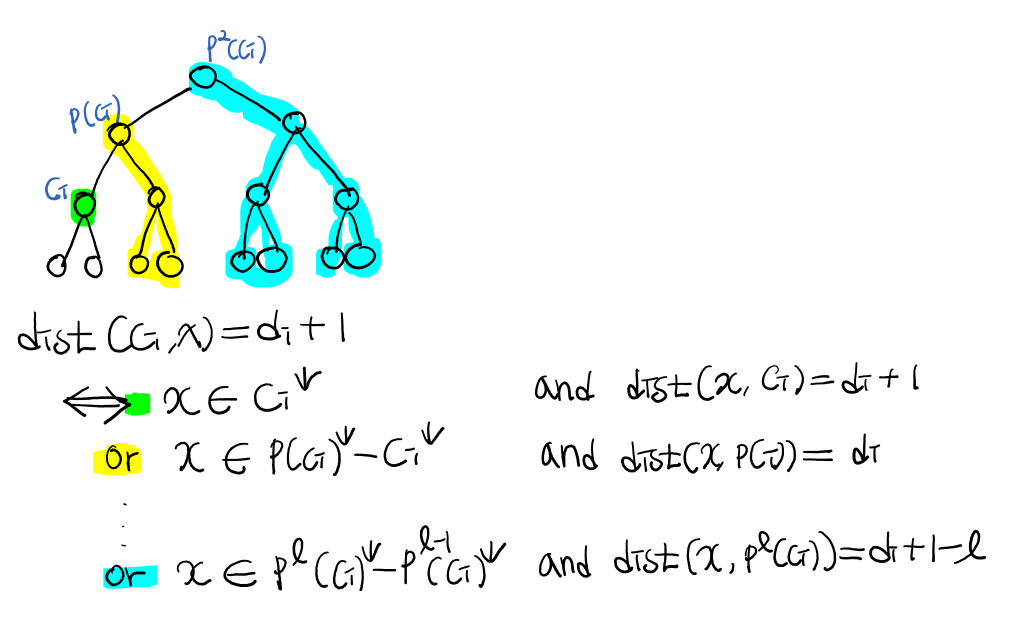 P²(Cᵢ)
P(Cᵢ)
Cᵢ
dist (Cᵢ, x) = dᵢ + 1
⟺ x ∈ Cᵢ↓ and dist(x, Cᵢ) = dᵢ + 1
or x ∈ P(Cᵢ)↓ − Cᵢ↓ and dist(x, P(Cᵢ)) = dᵢ
⋮
or x ∈ Pˡ(Cᵢ)↓ − Pˡ⁻¹(Cᵢ)↓ and dist(x, Pˡ(Cᵢ)) = dᵢ + 1 − l